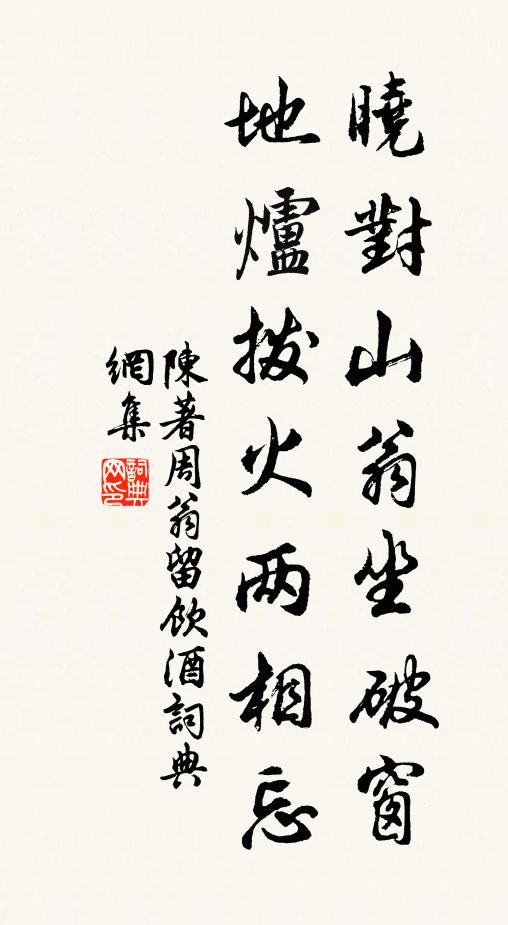 曉對山翁坐破窗
地爐撥火兩相忘
陳著周翁留飲酒詞典
網集
詞典
网印